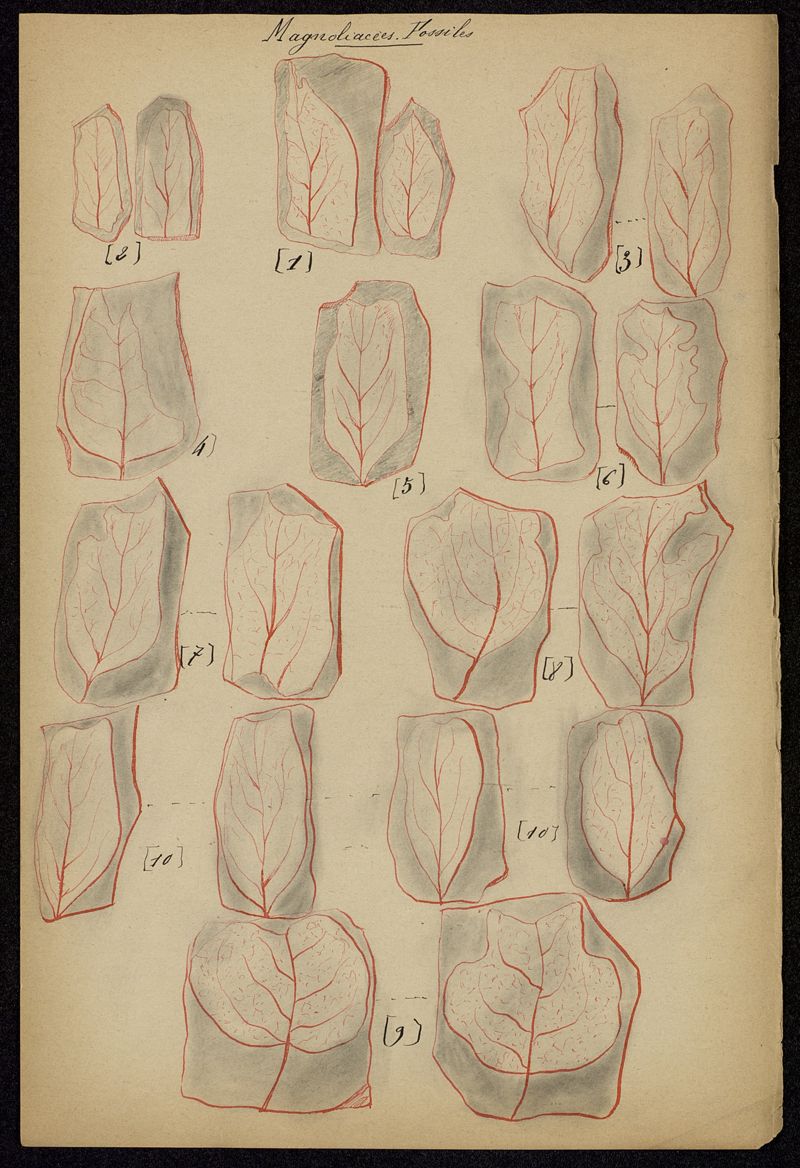 Magnoliacées. Fossiles
[2]
[1]
[3]
4)
[5]
[6]
[7]
[8]
[10]
[10]
[9]